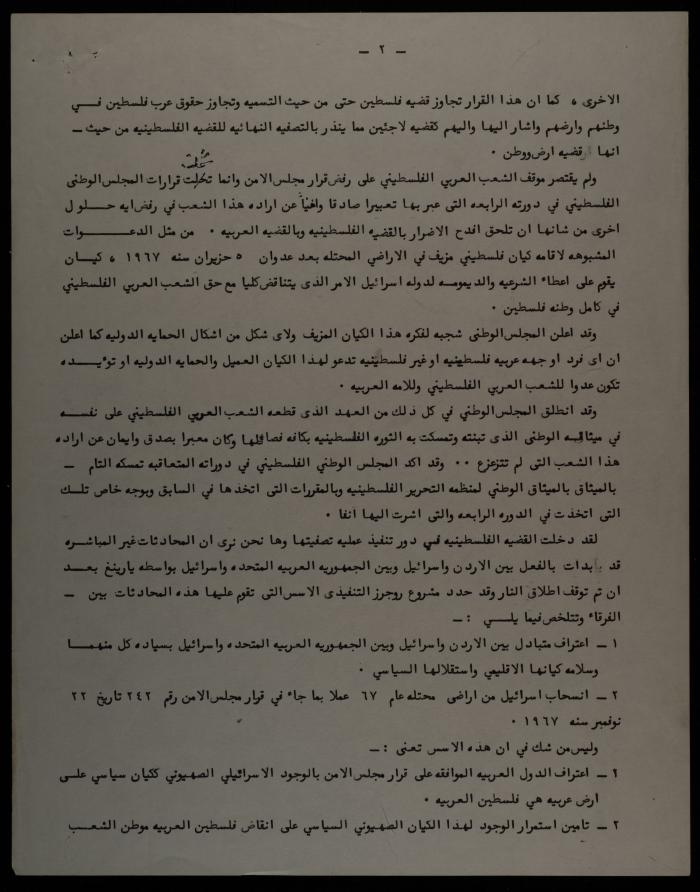 — ٢ —
الاخرى ، كما ان هذا القرار تجاوز قضيه فلسطين حتى من حيث التسميه وتجاوز حقوق عرب فلسطين في
وطنهم وارضهم واشار اليها واليهم كقضيه لاجئين مما ينذر بالتصفيه النهائيه للقضيه الفلسطينيه من حيث —
انها قضيه ارض ووطن .
ولم يقتصر موقف الشعب العربي الفلسطيني على رفض قرار مجلس الامن وانما تخلت قرارات المجلس الوطنى
الفلسطيني في دورته الرابعه التى عبر بها تعبيرا صادقا وافيا عن اراده هذا الشعب في رفض ايه حلول
اخرى من شانها ان تلحق افدح الاضرار بالقضيه الفلسطينيه وبالقضيه العربيه . من مثل الدعوات
المشبوهه لاقامه كيان فلسطيني مزيف في الاراضي المحتله بعد عدوان ٥ حزيران سنه ١٩٦٧ ، كيان
يقوم على اعطاء الشرعيه والديمومه لدوله اسرائيل الامر الذى يتناقض كليا مع حق الشعب العربي الفلسطيني
في كامل وطنه فلسطين .
وقد اعلن المجلس الوطنى شجبه لفكره هذا الكيان المزيف ولاى شكل من اشكال الحمايه الدوليه كما اعلن
ان اى فرد او جهه عربيه فلسطينيه او غير فلسطينيه تدعو لهذا الكيان العميل والحمايه الدوليه او تؤيده
تكون عدوا للشعب العربي الفلسطيني وللامه العربيه .
وقد انطلق المجلس الوطني في كل ذلك من العهد الذى قطعه الشعب العربي الفلسطيني على نفسه
في ميثاقه الوطنى الذى تبنته وتمسكت به الثوره الفلسطينيه بكافه فصائلها وكان معبرا بصدق وايمان عن اراده
هذا الشعب التى لم تتزعزع .. وقد اكد المجلس الوطني الفلسطيني في دوراته المتعاقبه تمسكه التام —
بالميثاق بالميثاق الوطني لمنظمه التحرير الفلسطينيه وبالمقررات التى اتخذها في السابق وبوجه خاص تلك
التى اتخذت في الدوره الرابعه والتى اشرت اليها انفا .
لقد دخلت القضيه الفلسطينيه في دور تنفيذ عمليه تصفيتها وها نحن نرى ان المحادثات غير المباشره
قد بدات بالفعل بين الاردن واسرائيل وبين الجمهوريه العربيه المتحده واسرائيل بواسطه يارينغ بعد
ان تم توقف اطلاق النار وقد حدد مشروع روجرز التنفيذى الاسس التى تقوم عليها هذه المحادثات بين —
الفرقاء وتتلخص فيما يلي : —
١ — اعتراف متبادل بين الاردن واسرائيل وبين الجمهوريه العربيه المتحده واسرائيل بسياده كل منهما
وسلامه كيانها الاقليمي واستقلالها السياسي .
٢ — انسحاب اسرائيل من اراضى محتله عام ٦٧ عملا بما جاء في قرار مجلس الامن رقم ٢٤٢ تاريخ ٢٢
نوفمبر سنه ١٩٦٧ .
وليس من شك في ان هذه الاسس تعنى : —
٢ — اعتراف الدول العربيه الموافقه على قرار مجلس الامن بالوجود الاسرائيلي الصهيوني ككيان سياسي على
ارض عربيه هي فلسطين العربيه .
٢ — تامين استمرار الوجود لهذا الكيان الصهيوني السياسي على انقاض فلسطين العربيه موطن الشعب